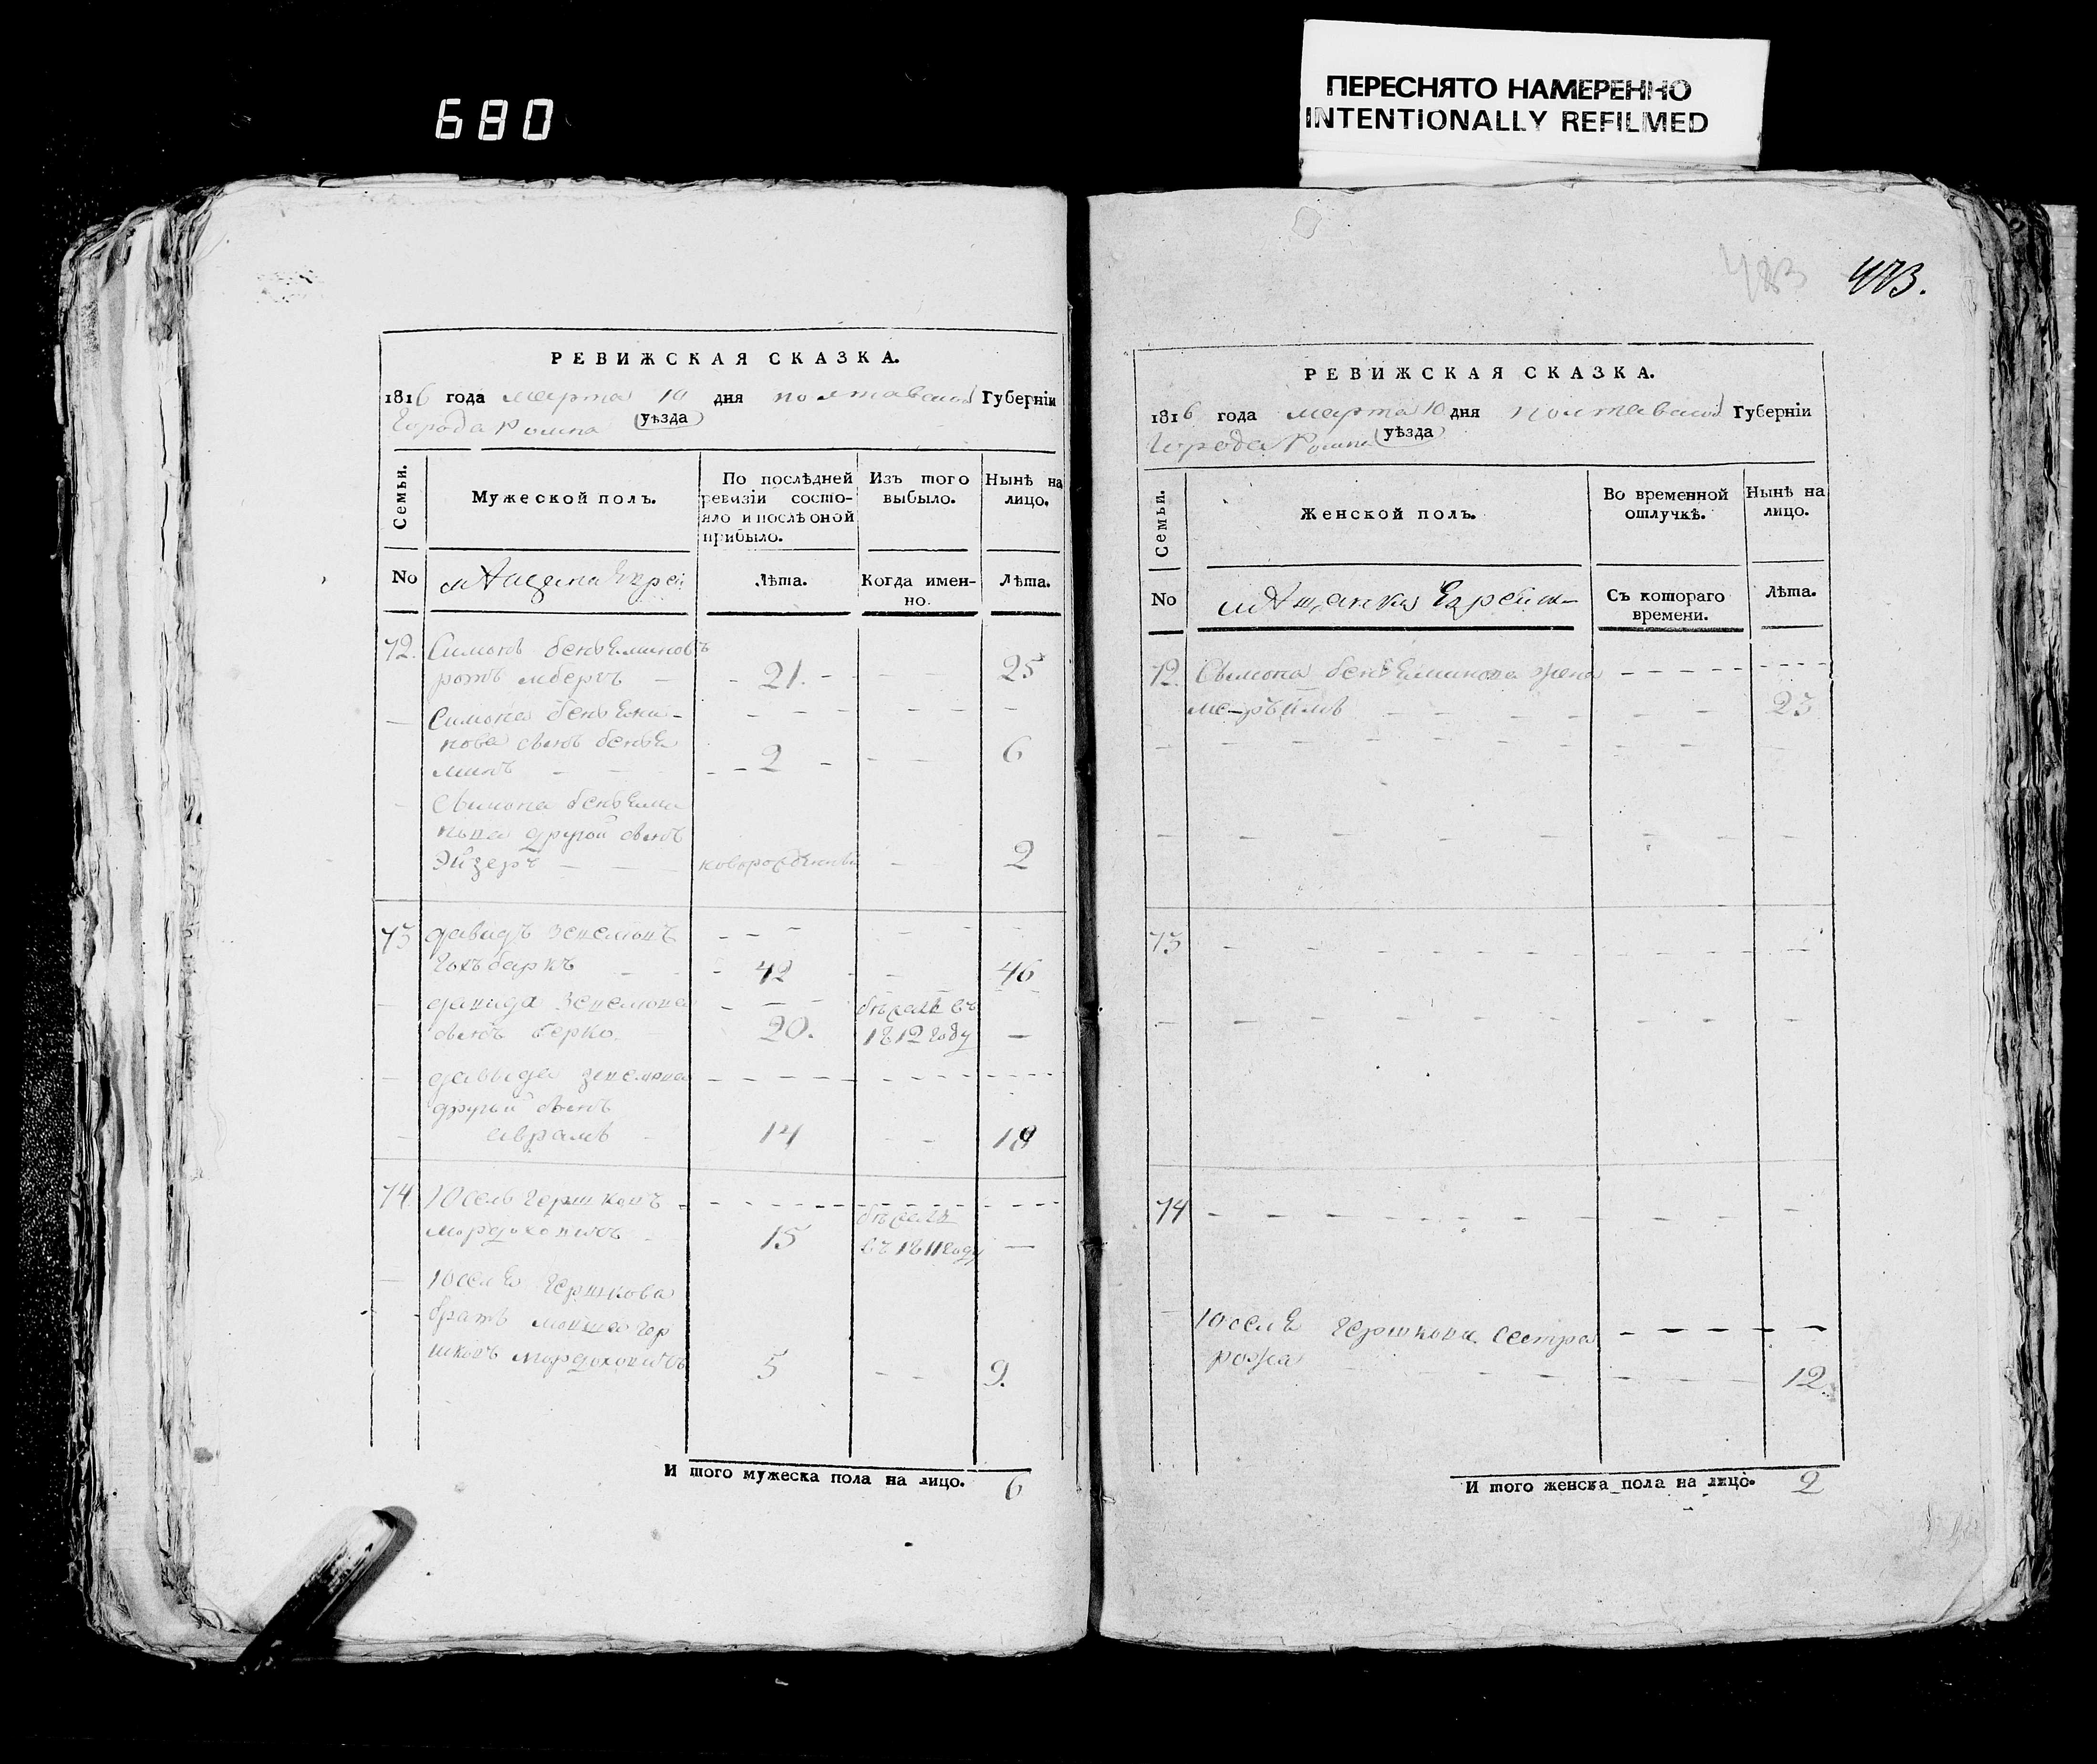 680
ПЕРЕСНЯТО НАМЕРЕННО
INTENTIONALLY REFILMED
473.
РЕВИЖСКАЯ СКАЗКА.
1816 года марта 10 дня полтавской Губернiи
Города Ромна (уѣзда)
Семьи.
Мужеской полъ.
По послѣдней ревизiи состо-
яло и послѣ оной
прибыло.
Изъ того
выбыло.
Нынѣ на
лицо.
No
мѣщане Евреи
Лѣта.
Когда имен-
но.
Лѣта.
72. Симонъ беньѣминовъ
21. 25
Симона беньѣми-
нова сынъ беньѣ
минъ 2 6
Симона беньѣми
нова другой сынъ
Эйзеръ новорожденный 2
73 давидъ
42 46
давида
сынъ берко. 20. бѣжалъ въ
1812 году
давида
другой сынъ
аврамъ 14 18
74 Юсель Гершковъ
мордоховичъ 15 бѣжалъ
въ 1811 году
Юселя Гершкова
братъ мошко гер
шковъ мордоховичъ 5 9.
И того мужеска пола на лицо. 6
РЕВИЖСКАЯ СКАЗКА.
1816 года марта 10 дня полтавской Губернiи
Города Ромна (уѣзда)
Семьи.
Женской полъ.
Во временной
отлучкѣ.
Нынѣ на
лицо.
No
мѣщанки Еврейски
Съ котораго
времени.
Лѣта.
72. Симона беньѣминова жена
23
73
74
Юселя Гершкова сестра
рожа 12.
И того женска пола на лицо. 2